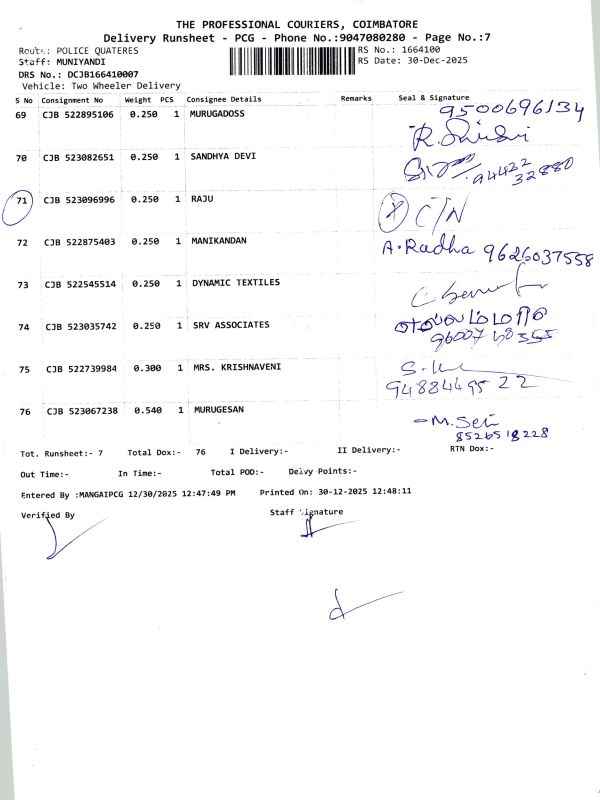 THE PROFESSIONAL COURIERS, COIMBATORE
Delivery Runsheet - PCG - Phone No.:9047080280 - Page No.:7
Route: POLICE QUATERES RS No.: 1664100
Staff: MUNIYANDI RS Date: 30-Dec-2025
DRS No.: DCJB166410007
Vehicle: Two Wheeler Delivery
S No Consignment No Weight PCS Consignee Details Remarks Seal & Signature
69 CJB 522895106 0.250 1 MURUGADOSS 9500696134
70 CJB 523082651 0.250 1 SANDHYA DEVI 94422 32880
71 CJB 523096996 0.250 1 RAJU
72 CJB 522875403 0.250 1 MANIKANDAN A. Radha 9626037558
73 CJB 522545514 0.250 1 DYNAMIC TEXTILES
74 CJB 523035742 0.250 1 SRV ASSOCIATES
75 CJB 522739984 0.300 1 MRS. KRISHNAVENI
94884495 22
76 CJB 523067238 0.540 1 MURUGESAN
8526518228
Tot. Runsheet:- 7 Total Dox:- 76 I Delivery:- II Delivery:- RTN Dox:-
Out Time:- In Time:- Total POD:- Delvy Points:-
Entered By :MANGAIPCG 12/30/2025 12:47:49 PM Printed On: 30-12-2025 12:48:11
Verified By Staff Signature